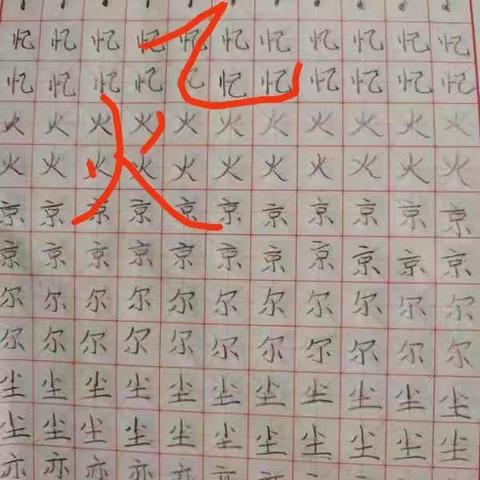 忆忆忆忆忆忆忆忆忆忆忆
忆忆忆忆忆忆忆忆忆忆忆
乙
火火火火火火火火火火火
火火火火火火火火火火火
火
京京京京京京京京京京京
京京京京京京京京京京京
尔尔尔尔尔尔尔尔尔尔尔
尔尔尔尔尔尔尔尔尔尔尔
尘尘尘尘尘尘尘尘尘尘尘
尘尘尘尘尘尘尘尘尘尘尘
亦亦亦亦亦亦